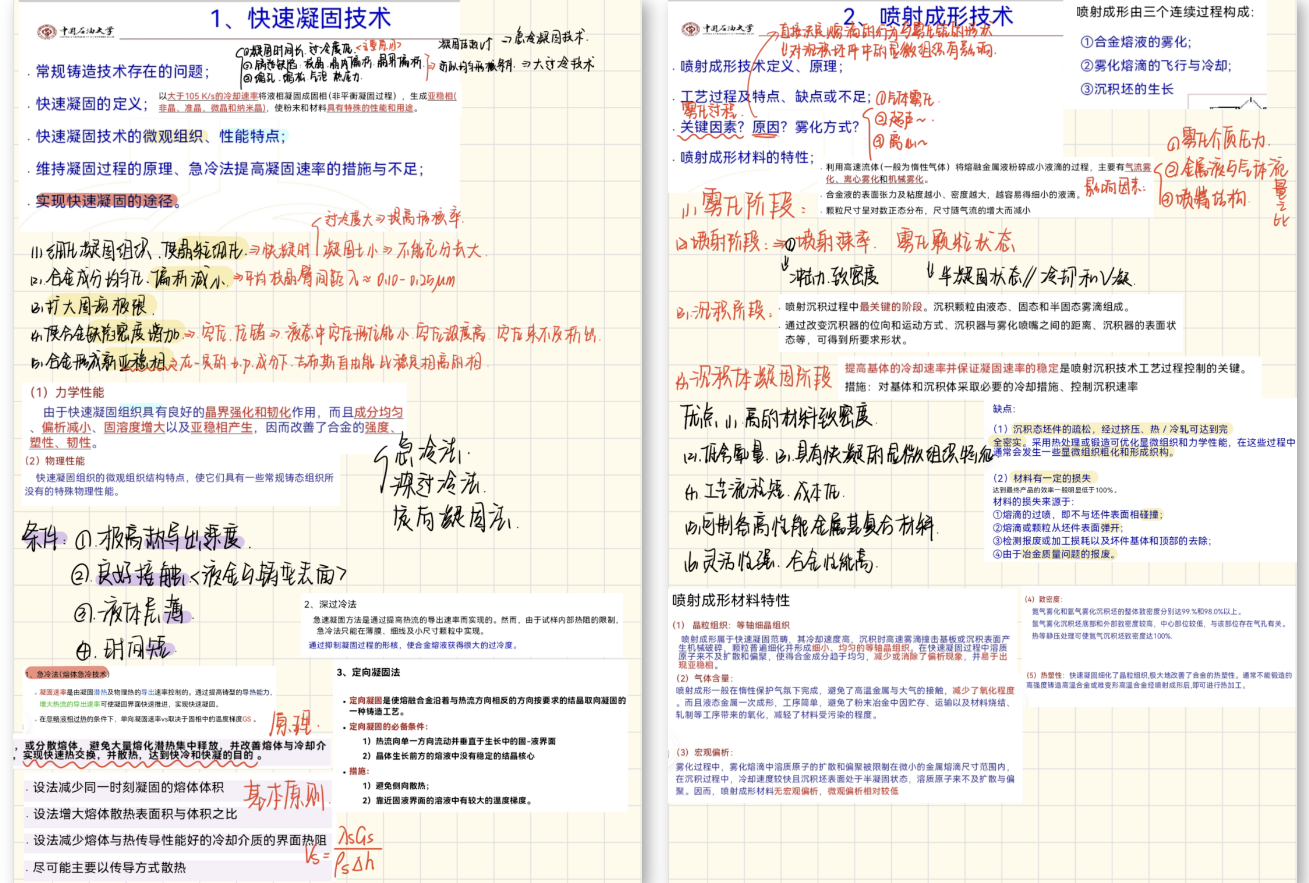 1、快速凝固技术
中国石油大学
①凝固时间长 过冷度低<主要原因>
凝固落敝时 → 急冷凝固技术.
→大过冷技术
. 常规铸造技术存在的问题；
. 快速凝固的定义；
以大于105 K/s的冷却速率将液相凝固成固相(非平衡凝固过程），生成亚稳相(
非晶、准晶、微晶和纳米晶)，使粉末和材料具有特殊的性能和用途。
. 快速凝固技术的微观组织、性能特点；
. 维持凝固过程的原理、急冷法提高凝固速率的措施与不足；
. 实现快速凝固的途径。
过冷度大→提高形核率.
(1).细化凝固组织.使晶粒细化.⇒快凝时 凝固土小⇒不能充分长大.
(2).合金成分均匀.偏析减小.⇒平均枝晶臂间距入≈0.10-0.25μm
(3).扩大固溶极限.
(4).使合金缺陷密度增加⇒空位、位错→液态中空位形成能小.空位浓度高.空位来不及析出.
(5).合金形成新亚稳相⇒在一定的t.p.成分下.吉布斯自由能比稳定相高的相.
（1）力学性能
由于快速凝固组织具有良好的晶界强化和韧化作用，而且成分均匀
、偏析减小、固溶度增大以及亚稳相产生，因而改善了合金的强度、
塑性、韧性。
（2）物理性能
快速凝固组织的微观组织结构特点，使它们具有一些常规铸态组织所
没有的特殊物理性能。
急冷法.
深过冷法.
定向凝固法.
条件：①.极高热导出速度.
②.良好接触<液金与锅炉表面>
③.液体层薄
④.时间短
2、深过冷法
急速凝固方法是通过提高热流的导出速率而实现的。然而，由于试样内部热阻的限制，
急冷法只能在薄膜、细线及小尺寸颗粒中实现。
通过抑制凝固过程的形核，使合金溶液获得很大的过冷度。
1、急冷法(熔体急冷技术)
. 凝固速率是由凝固潜热及物理热的导出速率控制的。通过提高铸型的导热能力，
增大热流的导出速率可使凝固界面快速推进，实现快速凝固。
. 在忽略液相过热的条件下，单向凝固速率vs取决于固相中的温度梯度GS 。
原理.
，或分散熔体，避免大量熔化潜热集中释放，并改善熔体与冷却介
，实现快速热交换，并散热，达到快冷和快凝的目的 。
. 设法减少同一时刻凝固的熔体体积
基本原则
. 设法增大熔体散热表面积与体积之比
. 设法减少熔体与热传导性能好的冷却介质的界面热阻
. 尽可能主要以传导方式散热
Vs=λsGs/ρsΔh
3、定向凝固法
• 定向凝固是使熔融合金沿着与热流方向相反的方向按要求的结晶取向凝固的
一种铸造工艺。
• 定向凝固的必备条件：
1）热流向单一方向流动并垂直于生长中的固-液界面
2）晶体生长前方的溶液中没有稳定的结晶核心
• 措施：
1）避免侧向散热；
2）靠近固液界面的溶液中有较大的温度梯度。
2、喷射成形技术
中国石油大学
喷射成形由三个连续过程构成：
①合金熔液的雾化；
②雾化熔滴的飞行与冷却；
③沉积坯的生长
. 喷射成形技术定义、原理；
. 工艺过程及特点、缺点或不足；
①气体雾化
②超声~
③离心~
雾化过程.
. 关键因素？原因？雾化方式？
. 喷射成形材料的特性；
. 利用高速流体(一般为惰性气体）将熔融金属液粉碎成小液滴的过程，主要有气流雾
化、离心雾化和机械雾化。
. 合金液的表面张力及粘度越小、密度越大，越容易得细小的液滴。
. 颗粒尺寸呈对数正态分布，尺寸随气流的增大而减小
影响因素:
①雾化介质压力.
②金属液与气体流量之比
③喷嘴结构.
(1).雾化阶段：
(2)喷射阶段：→①喷射速率. 雾化颗粒状态
冲击力.致密度 半凝固状态 // 冷却和V凝.
(3).沉积阶段：
. 喷射沉积过程中最关键的阶段。沉积颗粒由液态、固态和半固态雾滴组成。
. 通过改变沉积器的位向和运动方式、沉积器与雾化喷嘴之间的距离、沉积器的表面状
态等，可得到所要求形状。
(4).沉积体凝固阶段
提高基体的冷却速率并保证凝固速率的稳定是喷射沉积技术工艺过程控制的关键。
措施：对基体和沉积体采取必要的冷却措施、控制沉积速率
优点.(1).高的材料致密度.
(2).低含氧量.(3).具有快凝的显微组织特征
(4).工艺流程短.成本低.
(5)可制备高性能金属基复合材料.
(6)灵活性强.合金性能高.
缺点：
（1）沉积态坯件的疏松，经过挤压、热 / 冷轧可达到完
全密实。采用热处理或锻造可优化显微组织和力学性能，在这些过程中
通常会发生一些显微组织粗化和形成织构。
（2）材料有一定的损失
达到最终产品的效率一般明显低于100%。
材料的损失来源于：
①熔滴的过喷，即不与坯件表面相碰撞；
②熔滴或颗粒从坯件表面弹开；
③检测报废或加工损耗以及坯件基体和顶部的去除；
④由于冶金质量问题的报废。
喷射成形材料特性
（1） 晶粒组织：等轴细晶组织
喷射成形属于快速凝固范畴，其冷却速度高，沉积时高速雾滴撞击基板或沉积表面产
生机械破碎，颗粒普遍细化并形成细小、均匀的等轴晶组织。在快速凝固过程中溶质
原子来不及扩散和偏聚，使得合金成分趋于均匀，减少或消除了偏析现象，并易于出
现亚稳相。
（2）气体含量：
喷射成形一般在惰性保护气氛下完成，避免了高温金属与大气的接触，减少了氧化程度
，而且液态金属一次成形，工序简单，避免了粉末冶金中因贮存、运输以及材料烧结、
轧制等工序带来的氧化，减轻了材料受污染的程度。
（3） 宏观偏析：
雾化过程中，雾化熔滴中溶质原子的扩散和偏聚被限制在微小的金属熔滴尺寸范围内，
在沉积过程中，冷却速度较快且沉积坯表面处于半凝固状态，溶质原子来不及扩散与偏
聚。因而，喷射成形材料无宏观偏析，微观偏析相对较低
（4） 致密度：
氮气雾化和氩气雾化沉积坯的整体致密度分别达99.%和98.0%以上。
氩气雾化沉积坯底部和外部致密度较高，中心部位较低，与该部位存在气孔有关。
热等静压处理可使氮气沉积坯致密度达100%.
（5）热塑性：快速凝固细化了晶粒组织,极大地改善了合金的热塑性。通常不能锻造的
高强度铸造高温合金或难变形高温合金经喷射成形后,即可进行热加工。